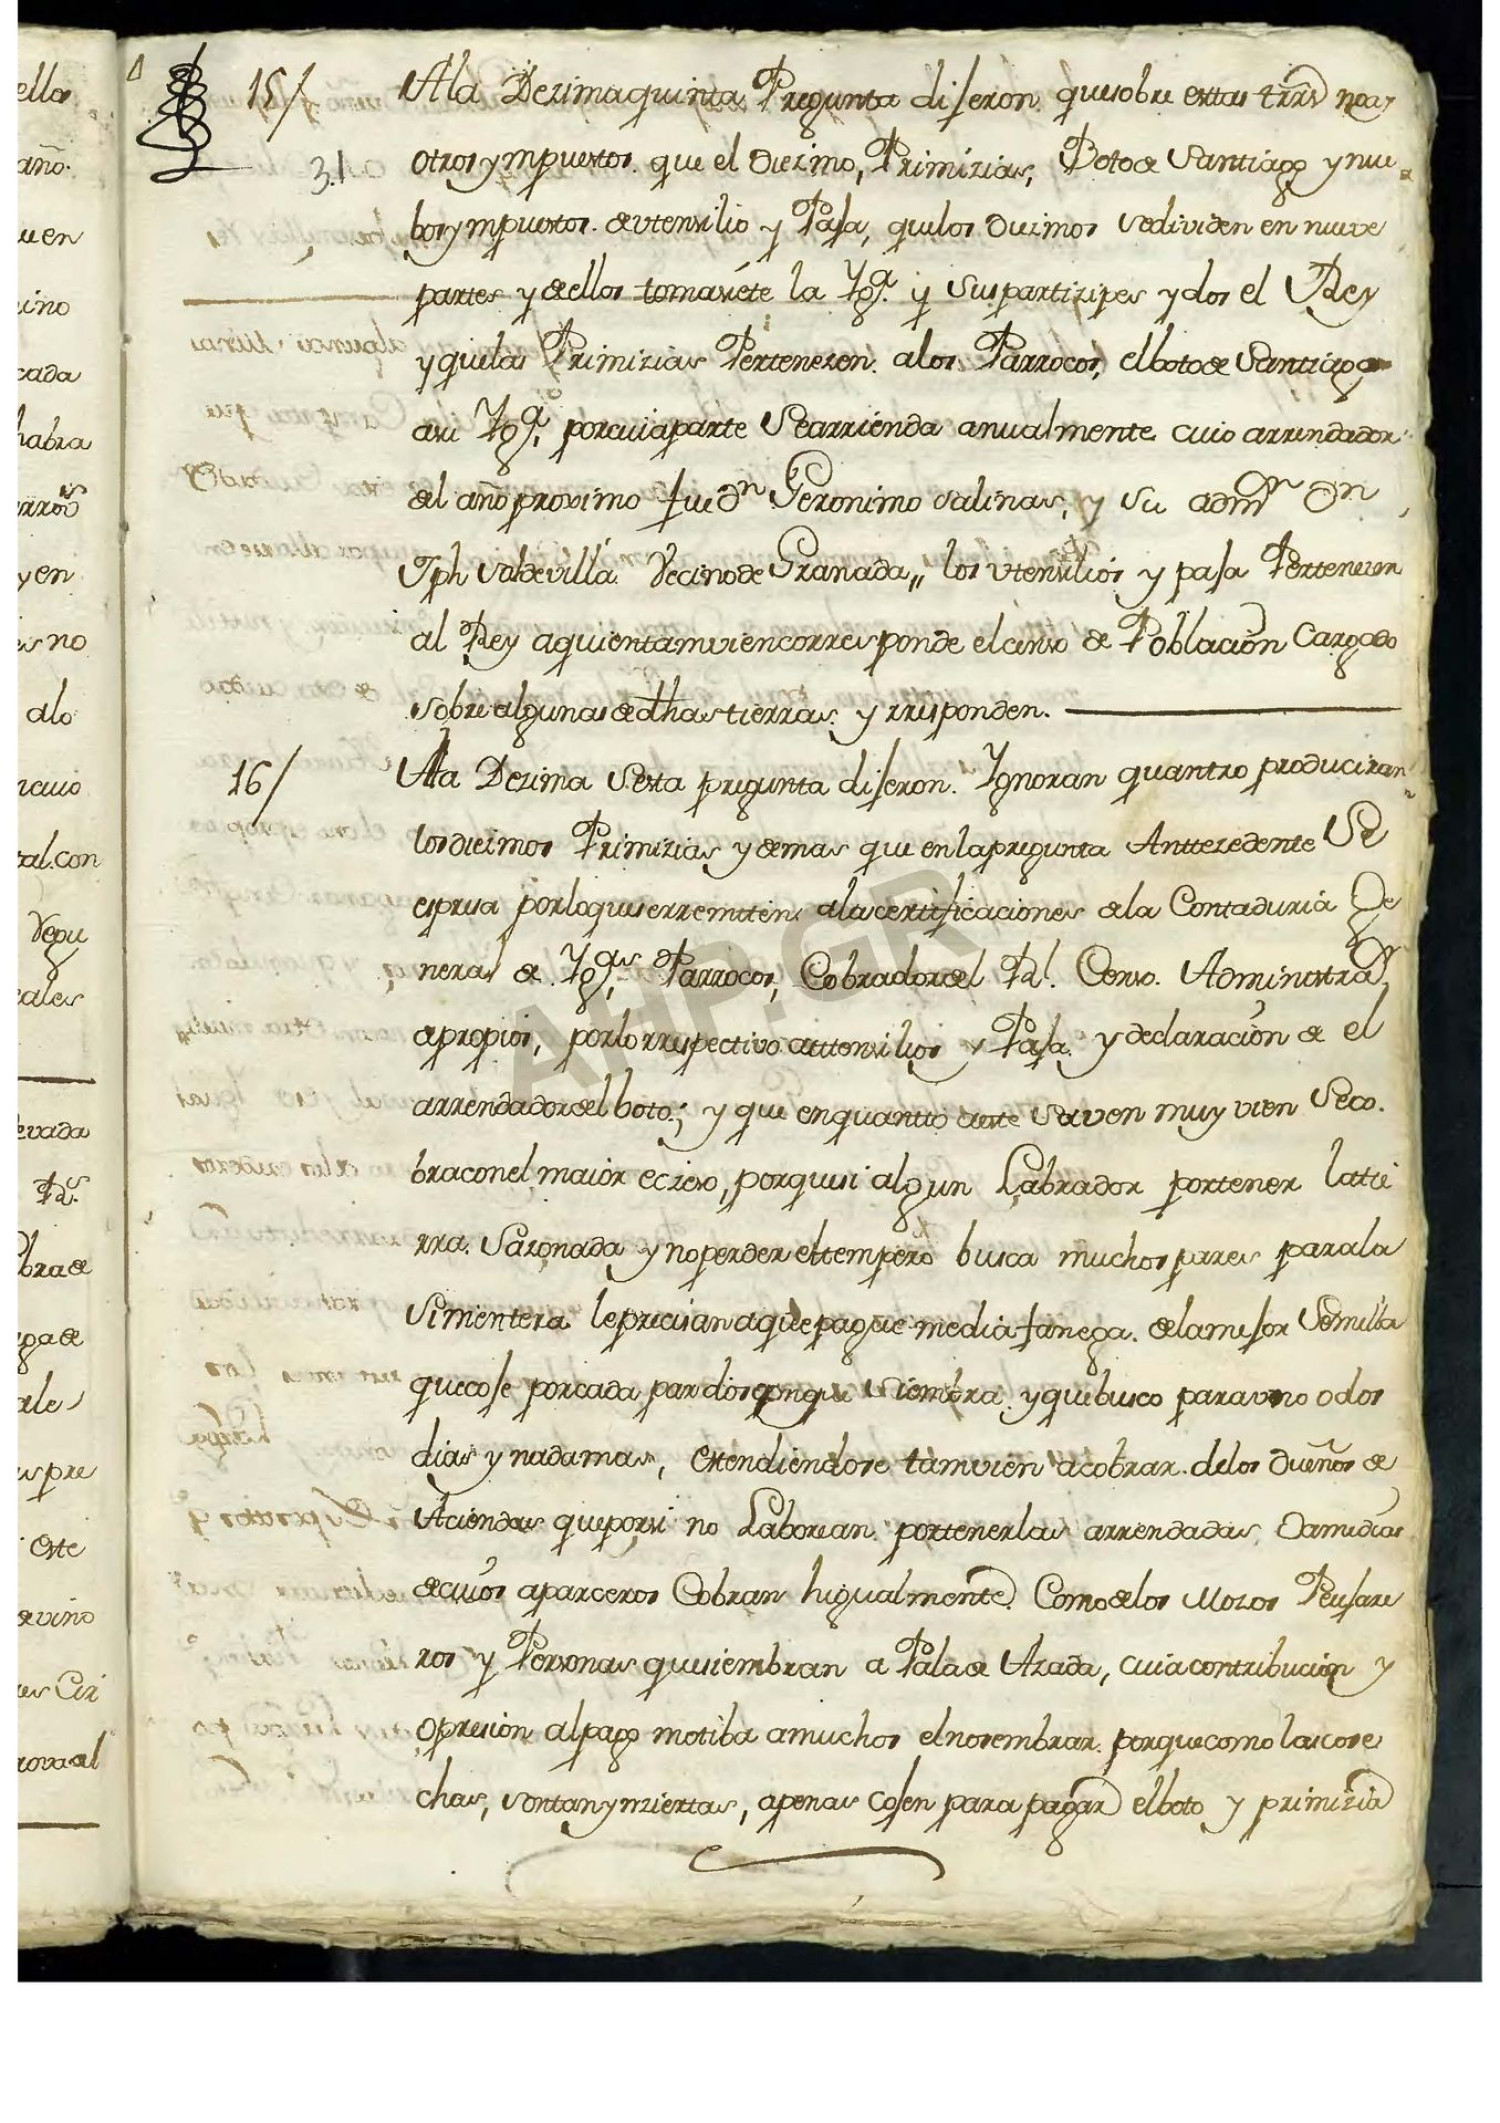 15/ Ala Dezimaquinta Pregunta dijeron quesobre estas trrs no ay
3.1 otros ympuestos que el Diezmo, Primizias, Boto de Santiago y nue
bos ympuestos de vtensilio y Paja, quelos Diezmos sedividen en nueve
partes y de ellos toma siete la Ygª. y sus partizipes y dos el Rey
y quelas Primizias Pertenezen alos Parrocos, el boto de Santiago
asu Ygª. por cuia parte Se arrienda anualmente cuio arrendador
del año proximo fue Dn Geronimo Salinas, y su admr Dn
Jph Valdevilla Vecino de Granada,, los vtensilios y paja Pertenecen
al Rey aquien tamvien corresponde el censo de Poblacion Cargado
sobre algunas de dhas tierras y rresponden.
16/ Ala Dezima Sexta pregunta dijeron Ygnoran quantto produciran
los diezmos Primizias y demas que en la pregunta Anttezedente Se
espresa por lo que se rremiten alas certificaciones de la Contaduria Ge
neral de Ygªs, Parrocos, Cobrador del Rl. Censo. Administrador
a propios, por lo rrespectivo a uttensilios y Paja y declaracion de el
arrendador del boto; y que en quantto aeste Saven muy vien Seco.
bra con el maior eczeso, porque si algun Labrador por tener la tie
rra Sazonada y no perder el tempero busca muchos pares para la
Simentera le precisan a que pague media fanega de la mejor Semilla
que coje por cada par dios con que siembra y que busco para uno o dos
dias y nada mas, extendiendose tamvien a cobrar de los Dueños de
Aciendas que por si no Laborean por tenerlas arrendadas, o a medias
de cuios aparceros Cobran higualmente Como de los Mozos Peujare
ros y Personas que siembran a Pala de Azada, cuia contribucion y
opresion al pago motiba a muchos el no sembrar porque como las cose
chas, son tan ynziertas, apenas cojen para pagar el boto y primizia